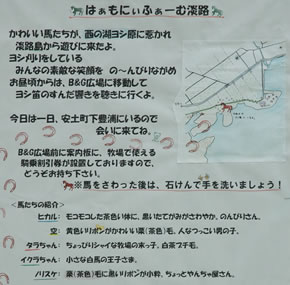 はぁもにぃふぁーむ淡路
かわいい馬たちが、西の湖ヨシ原に惹かれ
淡路島から遊びに来たよ。
ヨシ刈りをしている
みんなの素敵な笑顔を の~んびりながめ
お昼頃からは、B&G広場に移動して
ヨシ笛のすんだ響きを聴きに行くよ。
今日は一日、安土町下豊浦にいるので
会いに来てね。
B&G広場前に案内板に、牧場で使える
騎乗割引券が設置しておりますので、
どうぞお持ち下さい。
※馬をさわった後は、石けんで手を洗いましょう!
<馬たちの紹介>
ヒカル: モコモコした茶色い体に、黒いたてがみがさわやか、のんびりさん。
空: 黄色いリボンがかわいい栗(茶色)毛、人なつっこい男の子。
タラちゃん: ちょっぴりシャイな牧場の末っ子、白茶ブチ毛。
イクラちゃん: 小さな白馬の王子さま。
ノリスケ: 栗(茶色)毛に黒いリボンが小粋、ちょっとやんちゃ屋さん。